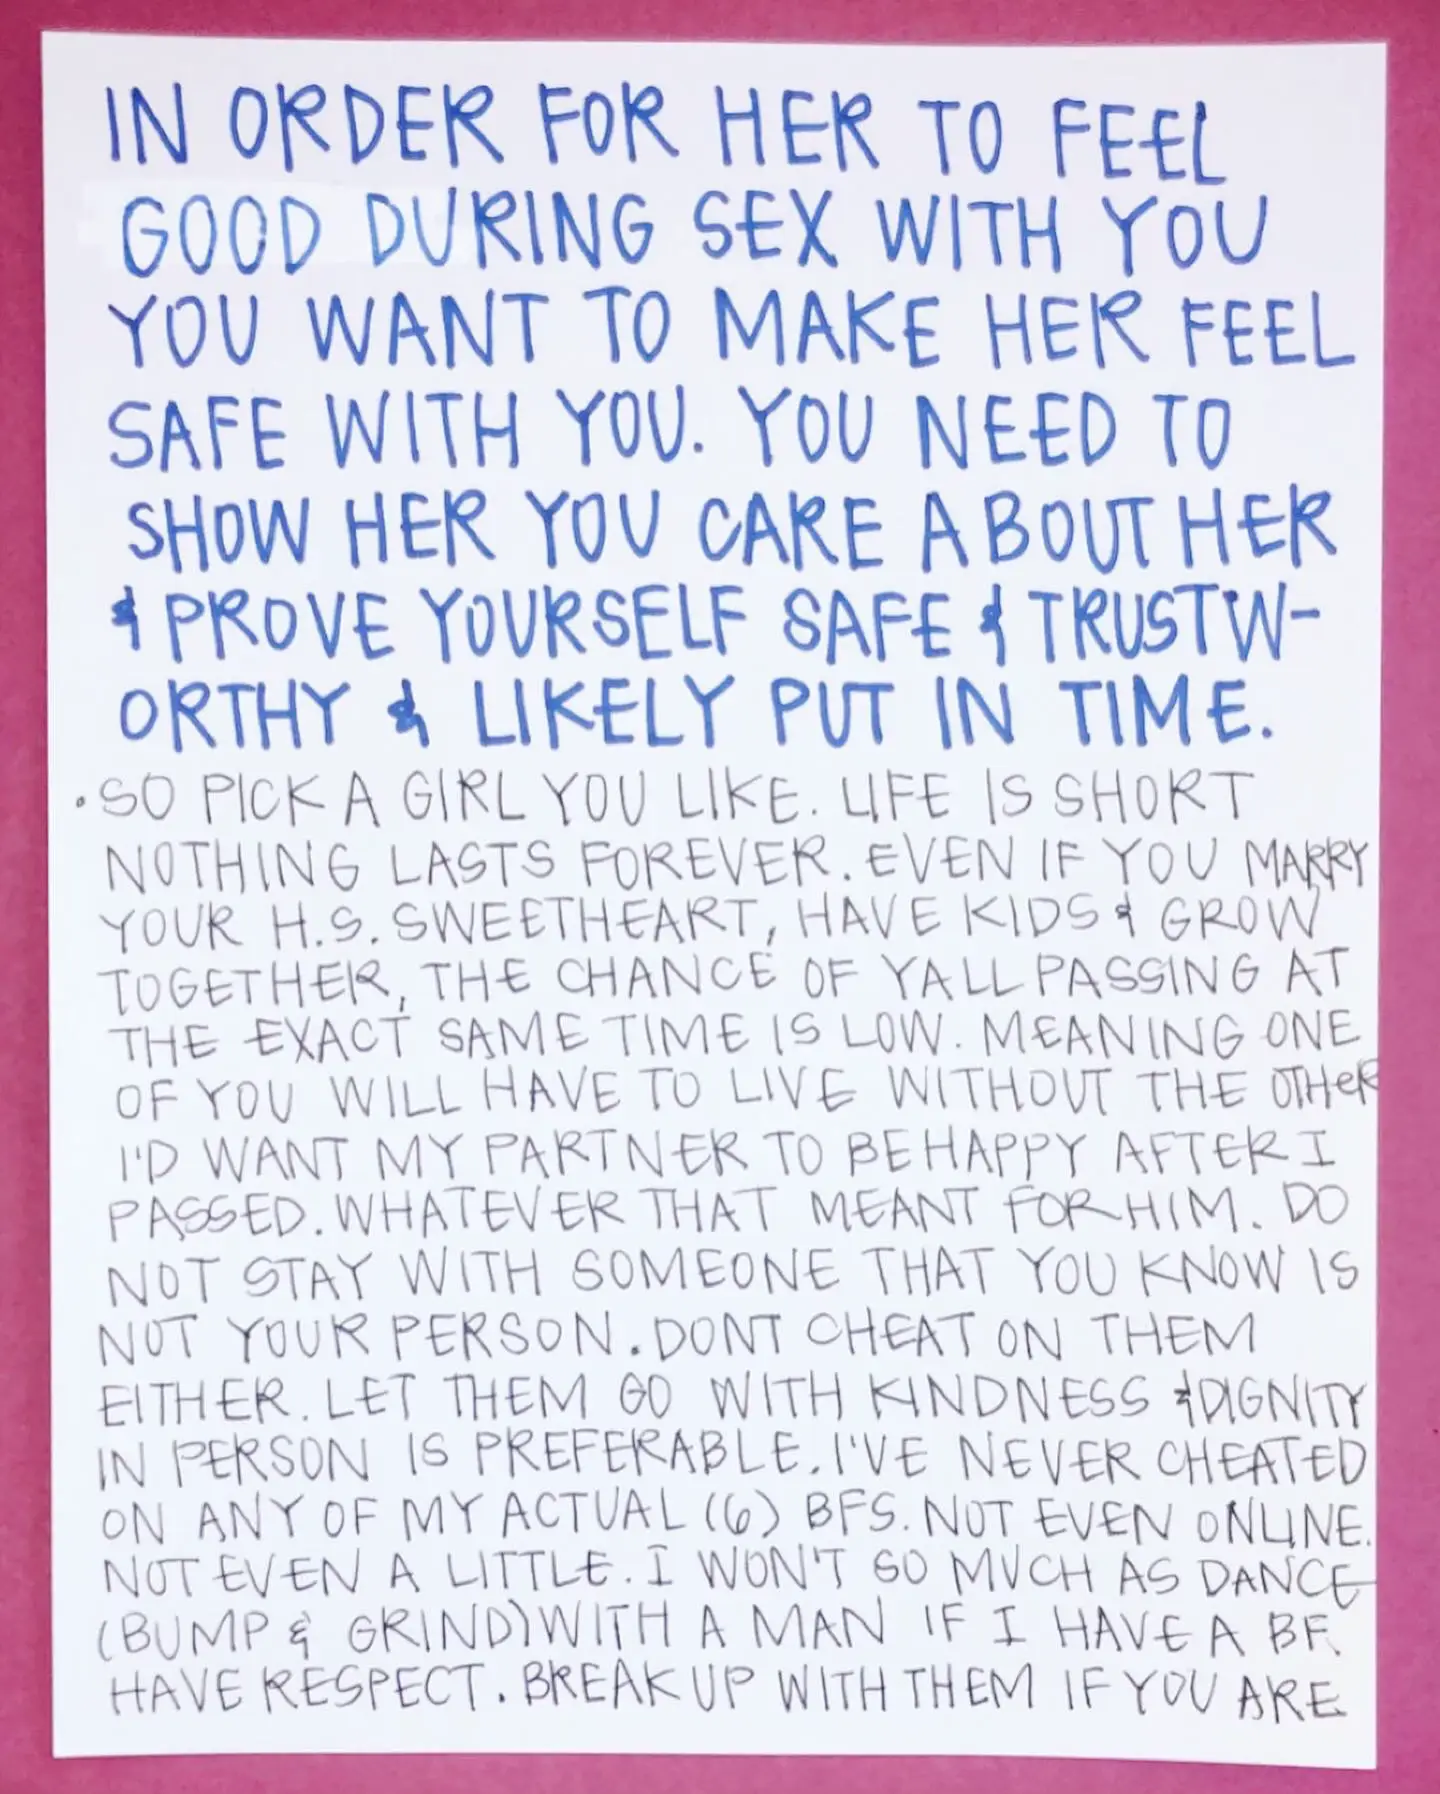 IN ORDER FOR HER TO FEEL
GOOD DURING SEX WITH YOU
YOU WANT TO MAKE HER FEEL
SAFE WITH YOU. YOU NEED TO
SHOW HER YOU CARE ABOUT HER
& PROVE YOURSELF SAFE & TRUSTW-
ORTHY & LIKELY PUT IN TIME.
• SO PICK A GIRL YOU LIKE. LIFE IS SHORT
NOTHING LASTS FOREVER. EVEN IF YOU MARRY
YOUR H.S. SWEETHEART, HAVE KIDS & GROW
TOGETHER, THE CHANCE OF YALL PASSING AT
THE EXACT SAME TIME IS LOW. MEANING ONE
OF YOU WILL HAVE TO LIVE WITHOUT THE OTHER
I'D WANT MY PARTNER TO BE HAPPY AFTER I
PASSED. WHATEVER THAT MEANT FOR HIM. DO
NOT STAY WITH SOMEONE THAT YOU KNOW IS
NOT YOUR PERSON. DONT CHEAT ON THEM
EITHER. LET THEM GO WITH KINDNESS & DIGNITY
IN PERSON IS PREFERABLE. I'VE NEVER CHEATED
ON ANY OF MY ACTUAL (6) BFS. NOT EVEN ONLINE.
NOT EVEN A LITTLE. I WON'T SO MUCH AS DANCE
(BUMP & GRIND) WITH A MAN IF I HAVE A BF.
HAVE RESPECT. BREAK UP WITH THEM IF YOU ARE